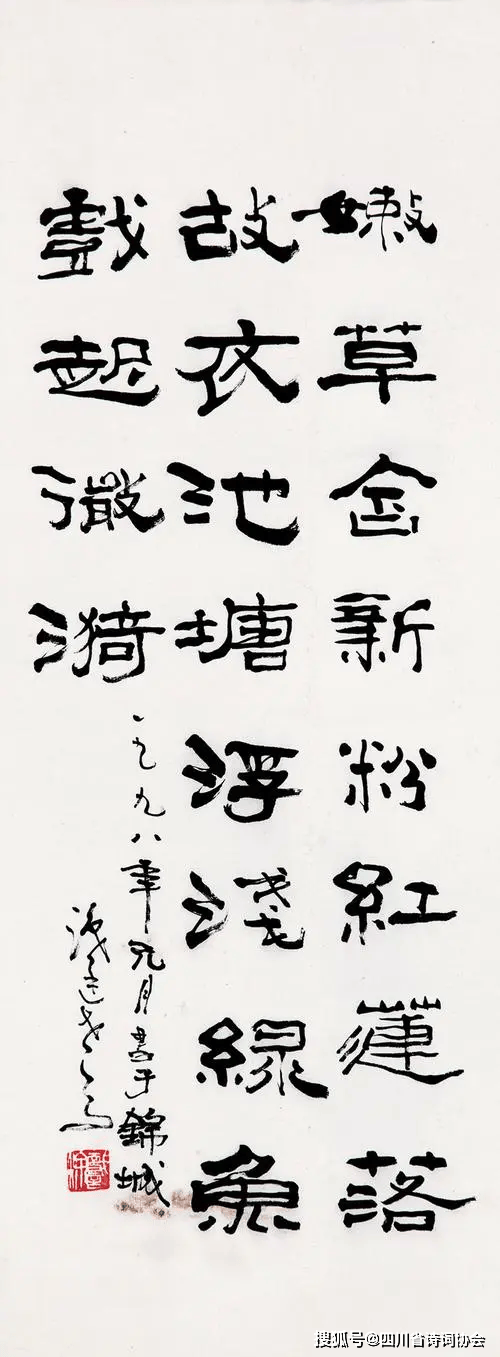 嫩草含新粉紅蓮落
故衣池塘浮淺綠魚
戲起微漪
一九九八年元月書于錦城
識途老馬
搜狐号@四川省诗词协会